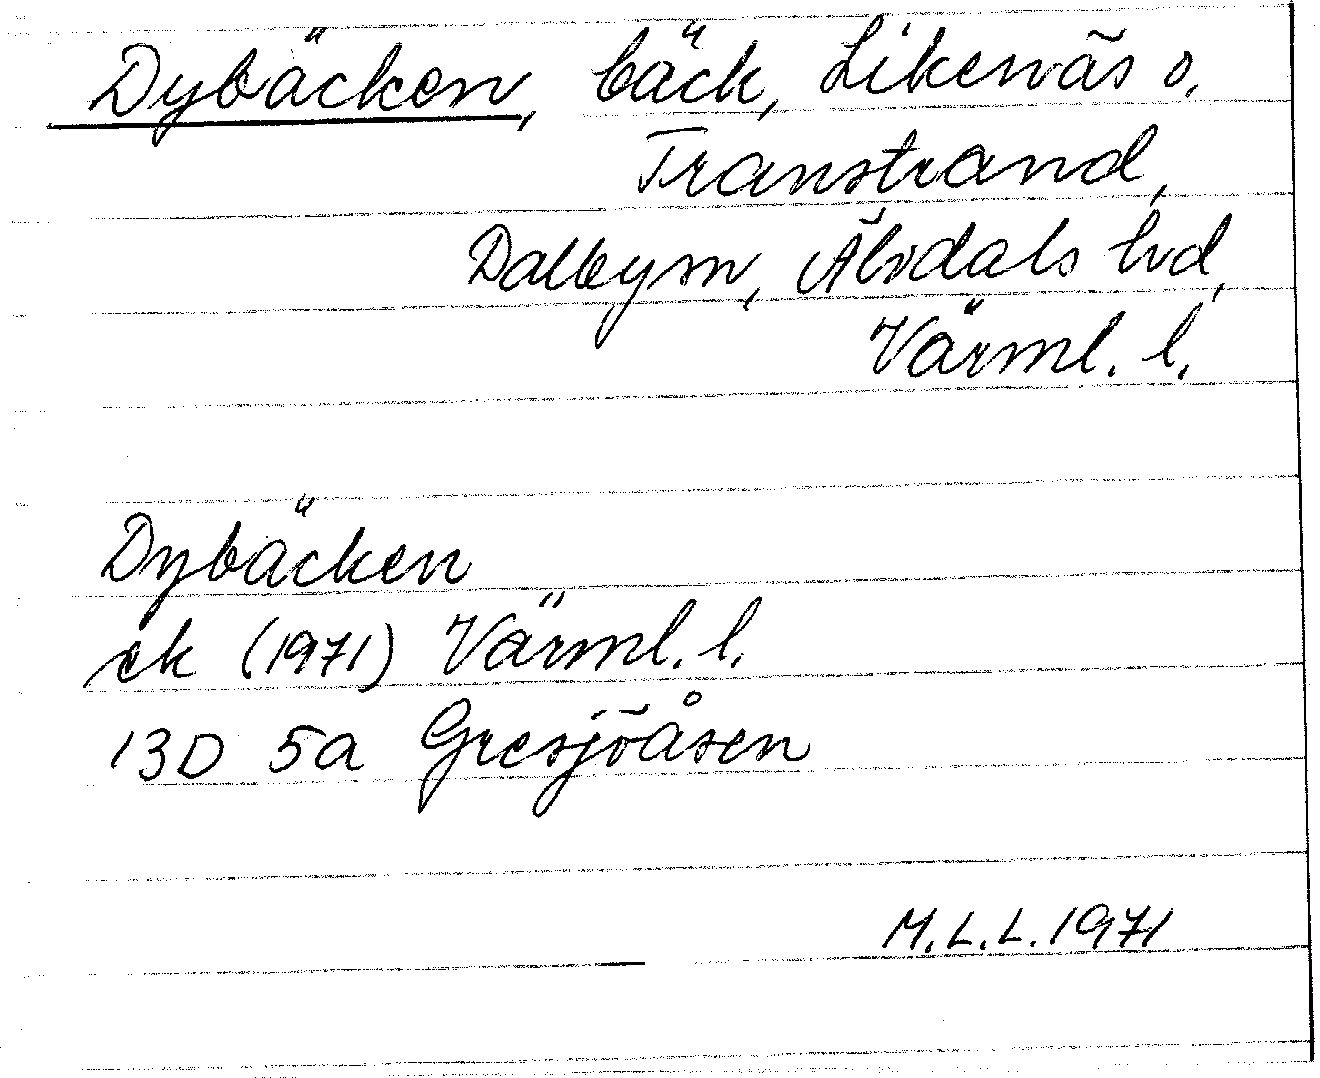 Dybäcken, bäck, Likenäs o.
Transtrand,
Dalby sn, Älvdals hd,
Värml. l.
Dybäcken
ek (1971) Värml. l.
13D 5a Gresjöåsen
M.L.L. 1971